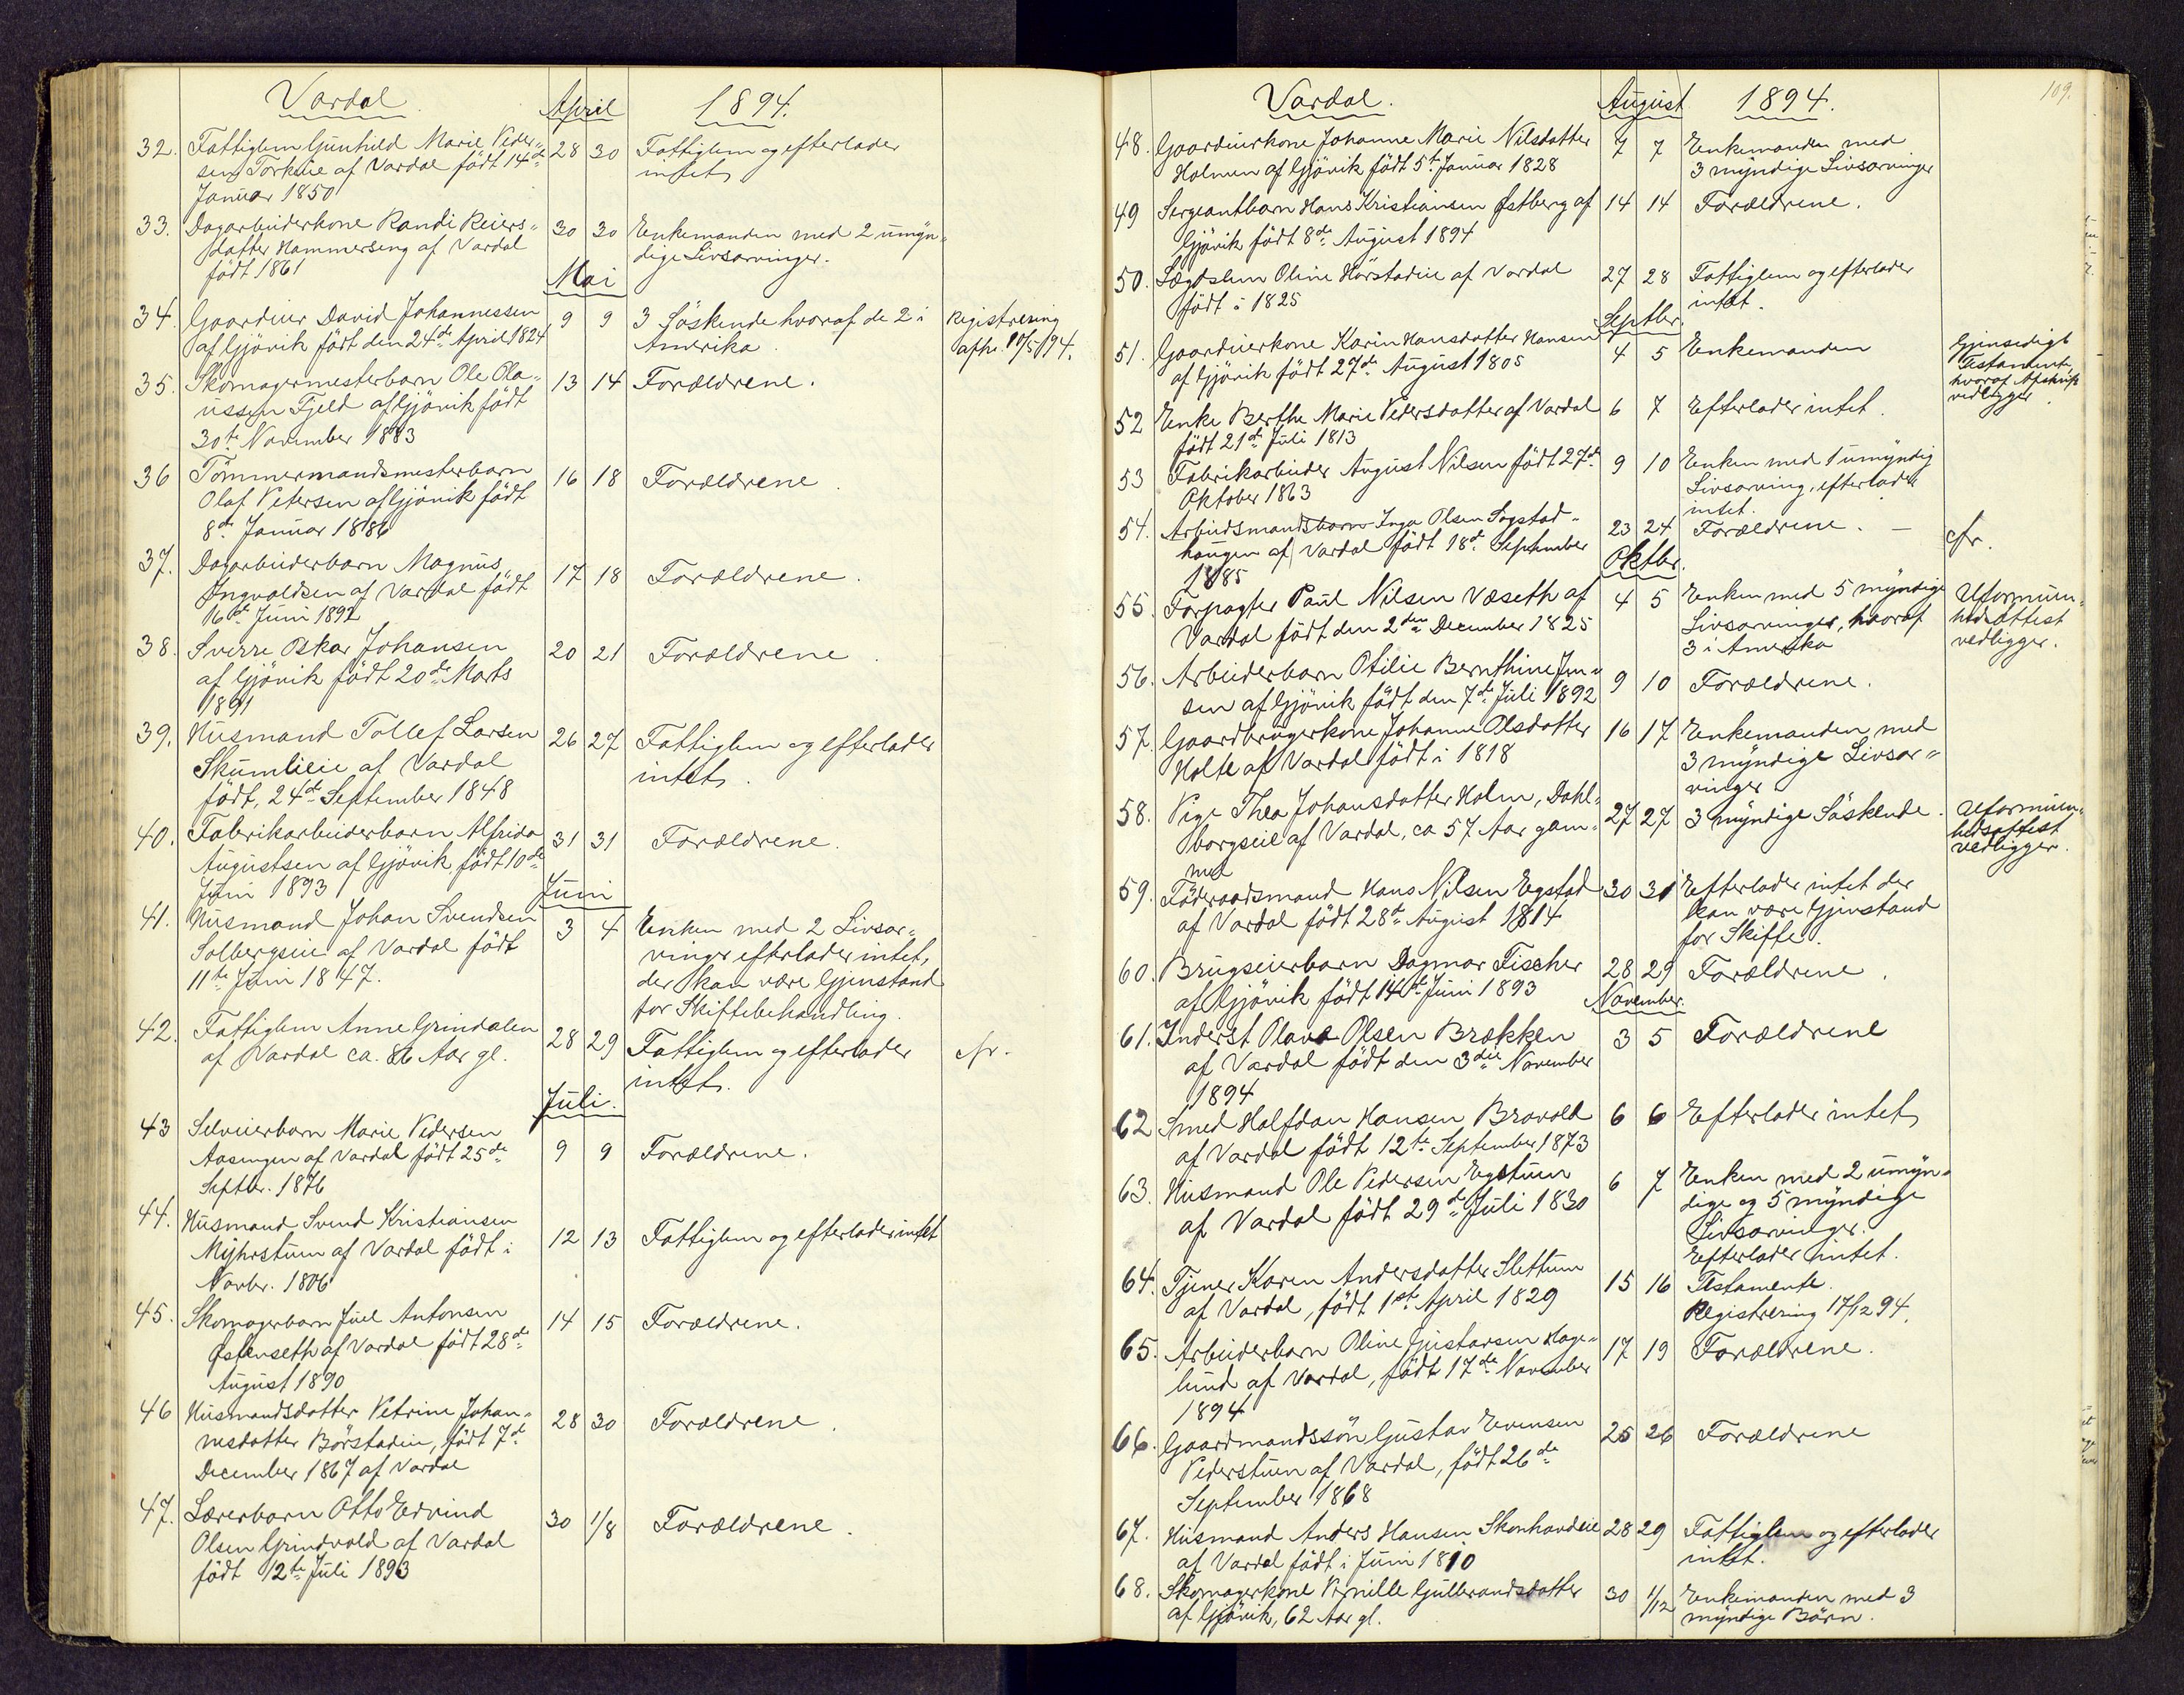 Vardal. April 1894.
32. Fattiglem Gunhild Marie Peder- 28 30 Fattiglem og efterlader
sen Torkeie af Vardal født 14de intet
Januar 1850
33. Dagarbeiderkone Randi Reiers- 30 30 Enkemanden med 2 umyn-
datter Hammerseng af Vardal dige Livsarvinger.
født 1861
Mai
34. Gaardeier David Johannessen 9 9 3 Söskende hvoraf de 2 i Registrering
af Gjövik født den 24de April 1824 Amerika. afh. 10/5 94.
35. Skomagermesterbarn Ole Ola- 13 14 Forældrene.
ussen Fjeld af Gjövik født
30te November 1883
36 Tömmermandsmesterbarn 16 18 Forældrene.
Olaf Petersen af Gjövik født
8de Januar 1886
37. Dagarbeiderbarn Magnus 17 18 Forældrene.
Ingvaldsen af Vardal født
16de Juni 1892
38. Sverre Oskar Johansen 20 21 Forældrene.
af Gjövik født 20de Marts
1891
39. Husmand Tollef Larsen 26 27 Fattiglem og efterlader
Skumlieie af Vardal intet.
født, 24de September 1848
40. Fabrikarbeiderbarn Alfrida 31 31 Forældrene.
Augustsen af Gjövik født 10de
Juni 1893
Juni
41. Husmand Johan Svendsen 3 4 Enken med 2 Livsar-
Solbergseie af Vardal født vinger efterlader intet,
11te Juni 1847. der kan være Gjenstand
for Skiftebehandling.
42. Fattiglem Anne Grindalen 28 29 Fattiglem og efterlader cfr.
af Vardal ca. 86 Aar gl. intet.
Juli.
43 Selveierbarn Marie Pedersen 9 9 Forældrene.
Aasengen af Vardal født 25de
Septbr. 1876
44. Husmand Svend Kristiansen 12 13 Fattiglem og efterlader intet
Myhrstuen af Vardal født i
Novbr. 1806
45. Skomagerbarn Juel Antonsen 14 15 Forældrene.
Østenseth af Vardal født 28de
August 1890
46 Husmandsdatter Petrine Johan- 28 30 Forældrene.
nesdatter Börstadeie, født 7de
December 1867 af Vardal
47. Lærerbarn Otto Edvind 30 1/8 Forældrene.
Olsen Grindvold af Vardal
født 12te Juli 1893
109.
Vardal. August 1894.
48. Gaardeierkone Johanne Marie Nilsdatter 7 7 Enkemanden med
Holmen af Gjövik født 5te Januar 1828 3 myndige Livsarvinger
49 Sergeantbarn Hans Kristiansen Østberg af 14 14 Forældrene.
Gjövik født 8de August 1894
50. Lægdslem Oline Hörstadeie af Vardal 27 28 Fattiglem og efterlader
født i 1825 intet.
Septbr.
51. Gaardeierkone Karin Hansdatter Hansen 4 5 Enkemanden Gjensidigt
af Gjövik født 27de August 1805 Testament
hvoraf Afskrift
vedligger.
52 Enke Berthe Marie Pedersdatter af Vardal 6 7 Efterlader intet.
født 21de Juli 1813
53 Fabrikarbeider August Nilsen født 27de 9 10 Enken med 1 umyndig
Oktober 1863 Livsarving, efterlader
intet.
54. Arbeidsmandsbarn Inga Olsen Sogstad- 23 24 Forældrene. – cfr.
haugen af Vardal født 18de September
1885
Oktbr.
55. Forpagter Paul Nilsen Væseth af 4 5 Enken med 5 myndige Uformuen-
Vardal født den 2den December 1825 Livsarvinger, hvoraf hedsattest
3 i Amerika vedligger.
56. Arbeiderbarn Otilie Bernthine Jen- 9 10 Forældrene.
sen af Gjövik født den 7de Juli 1892
57. Gaardbrugerkone Johanne Olsdatter 16 17 Enkemanden med
Holte af Vardal født i 1818 3 myndige Livsar-
vinger
58. Pige Thea Johansdatter Holm, Dahl- 27 27 3 myndige Söskende. Uformuen-
borgseie af Vardal, ca 57 Aar gam- hedsattest
mel vedligger.
59. Föderaadsmand Hans Nilsen Egstad 30 31 Efterlader intet der
af Vardal født 28de August 1814 kan være Gjenstand
for Skifte.
60. Brugseierbarn Dagmar Fischer 28 29 Forældrene.
af Gjövik født 14de Juni 1893
November.
61. Inderst Olava Olsen Brækken 3 5 Forældrene
af Vardal født den 3die November
1894
62 Smed Halfdan Hansen Bravold 6 6 Efterlader intet
af Vardal født 12te September 1873
63. Husmand Ole Pedersen Egstuen 6 7 Enken med 2 umyn-
af Vardal født 29de Juli 1830 dige og 5 myndige
Livsarvinger.
Efterlader intet.
64. Tjener Karen Andersdatter Slettum 15 16 Testamente.
af Vardal, født 1ste April 1829 Registrering 17/12 94.
65. Arbeiderbarn Oline Gustavsen Hage- 17 19 Forældrene.
lund af Vardal, født 17de November
1894
66. Gaardmandssön Gustav Evensen 25 26 Forældrene
Pederstuen af Vardal, født 26de
September 1868
67. Husmand Anders Hansen Skonhovdeie 28 29 Fattiglem og efterlader
af Vardal født i Juni 1810 intet.
68. Skomagerkone Pernille Gullerandsdatter 30 1/12 Enkemanden med 3
af Gjövik, 62 Aar gl. myndige Börn.